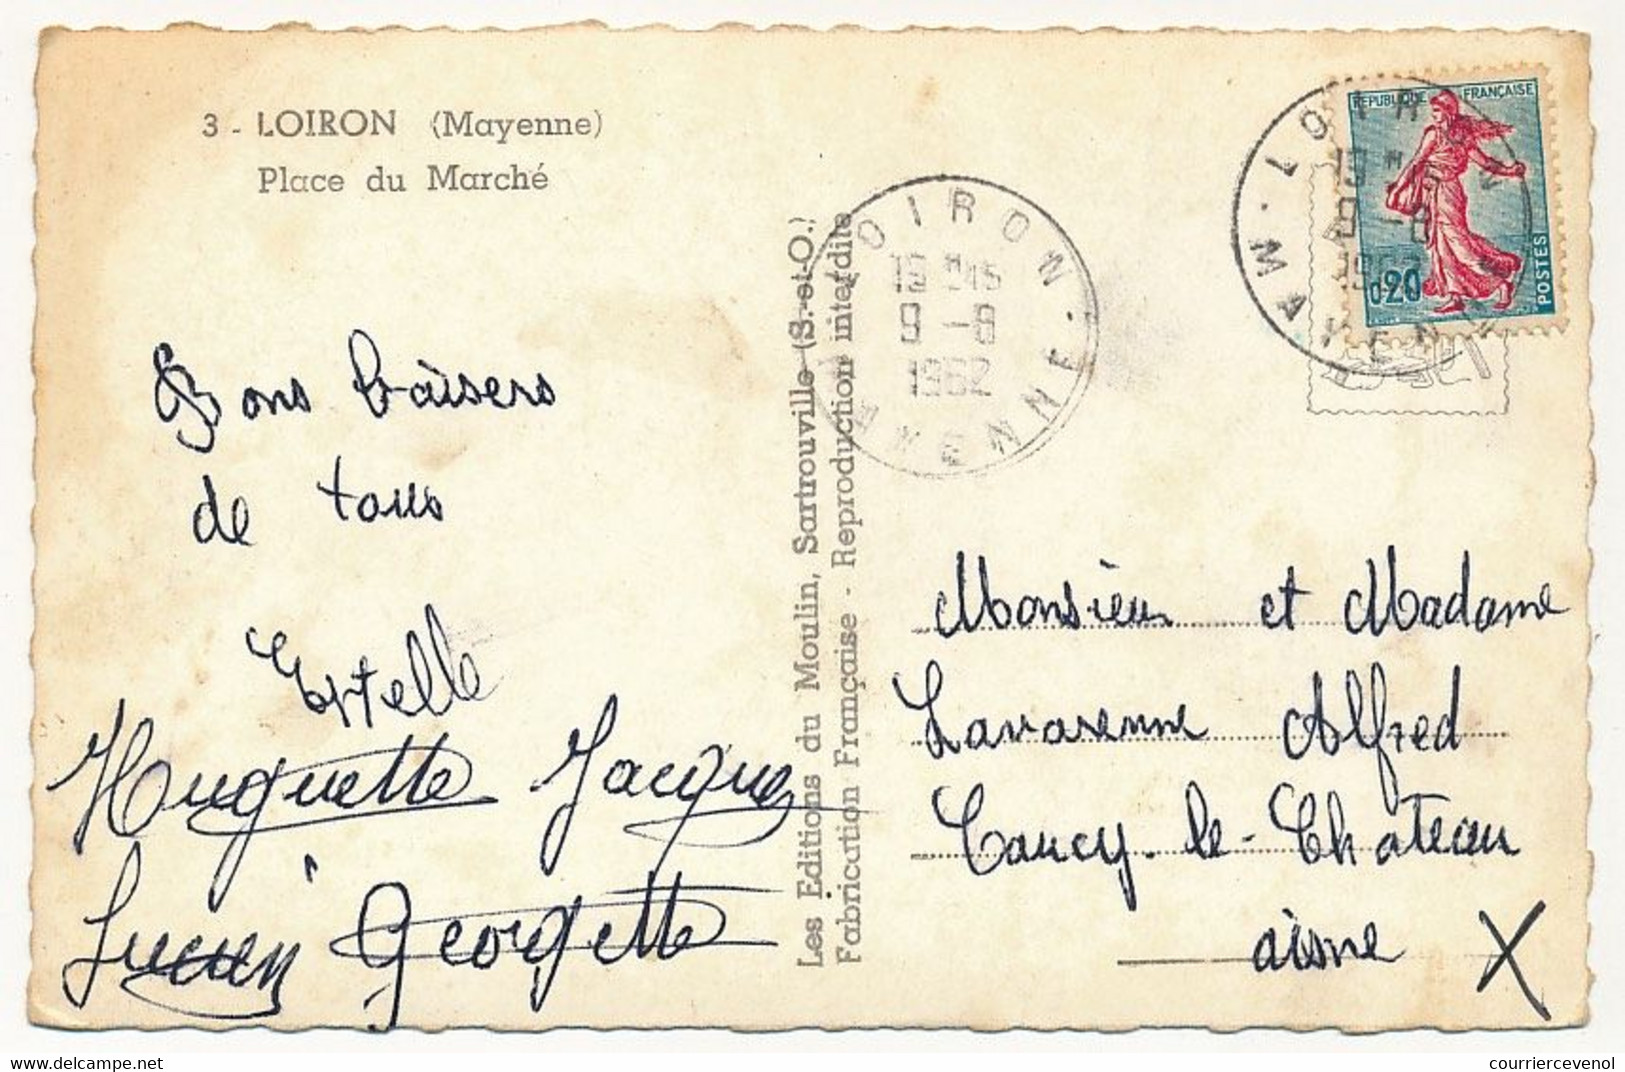 3 - LOIRON (Mayenne)
Place du Marché
Bons baisers
de tous
Estelle
Huguette Jacques
Lucien Georgette
Les Editions du Moulin, Sartrouville (S.-et-O.)
Fabrication Française - Reproduction interdite
LOIRON
9 -8
1962
MAYENNE
REPUBLIQUE FRANÇAISE
0,20
POSTES
LOIRON
9 -8
1962
MAYENNE
Monsieur et Madame
Lavarenne Alfred
Coucy-le-Chateau
aisne
X
courriercevenol
courriercevenol.com